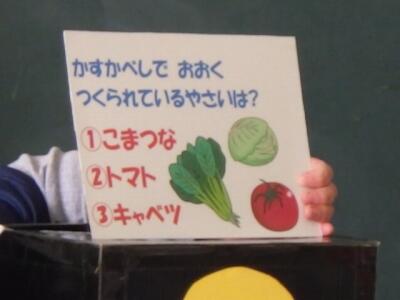 かすかべしで おおく
つくられているやさいは?
①こまつな
②トマト
③キャベツ